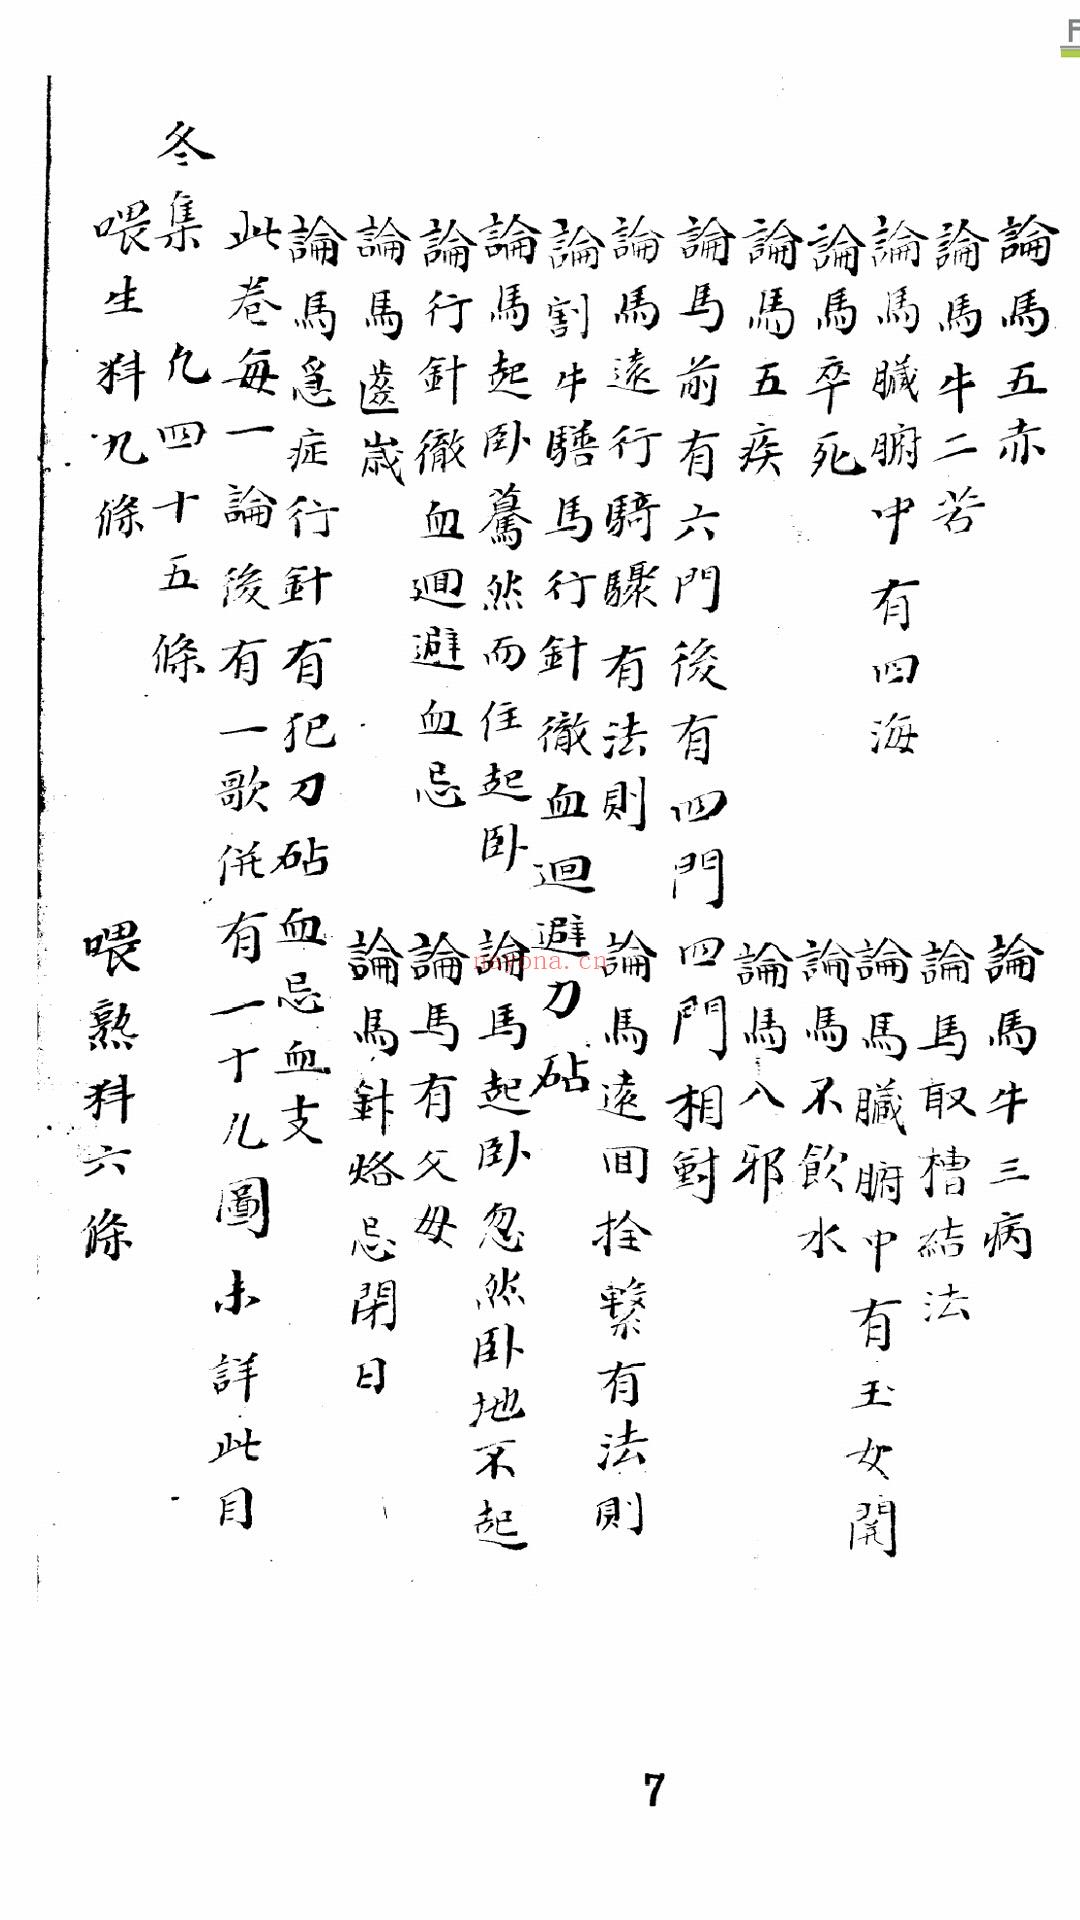 論馬五赤　論馬牛三病
論馬牛二若　論馬取槽結法
論馬臟腑中有四海　論馬臟腑中有玉女関
論馬卒死　論馬不飲水
論馬五疾　論馬八邪
論馬前有六門後有四門四門相對
論馬遠行騎驟有法則　論馬遠回拴繫有法則
論割牛騸馬行針徹血迴避刀砧
論馬起卧驀然而住起卧　論馬起卧忽然卧地不起
論行針徹血迴避血忌　論馬有父母
論馬齒歲　論馬針烙忌閉日
論馬急症行針有犯刀砧血忌血支
此卷每一論後有一歌併有一十九圖未詳此目
冬集　凡四十五條
喂生料九條　喂熟料六條
7
nayona.cn